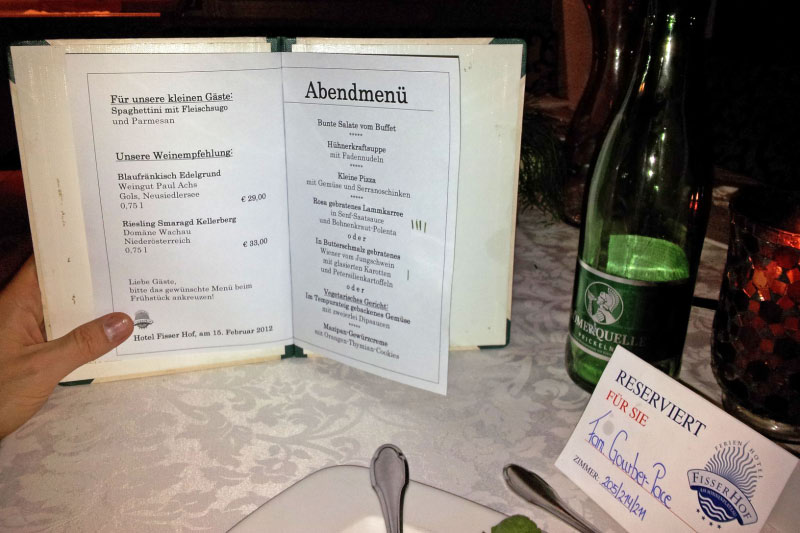 Für unsere kleinen Gäste:
Spaghettini mit Fleischsugo
und Parmesan
Unsere Weinempfehlung:
Blaufränkisch Edelgrund
Weingut Paul Achs
Gols, Neusiedlersee
0,75 l € 29,00
Riesling Smaragd Kellerberg
Domäne Wachau
Niederösterreich
0,75 l € 33,00
Liebe Gäste,
bitte das gewünschte Menü beim
Frühstück ankreuzen!
Hotel Fisser Hof, am 15. Februar 2012
Abendmenü
Bunte Salate vom Buffet
*****
Hühnerkraftsuppe
mit Fadennudeln
*****
Kleine Pizza
mit Gemüse und Serranoschinken
*****
Rosa gebratenes Lammkarree
in Senf-Saatsauce
und Bohnenkraut-Polenta
oder
In Butterschmalz gebratenes
Wiener vom Jungschwein
mit glasierten Karotten
und Petersilienkartoffeln
oder
Vegetarisches Gericht:
Im Tempurateig gebackenes Gemüse
mit zweierlei Dipsaucen
*****
Marzipan-Gewürzcreme
mit Orangen-Thymian-Cookies
MERQUELLE
RESERVIERT
FÜR SIE
Fam. Gowber-Pace
ZIMMER: 205/214/211
FERIENHOTEL
FISSERHOF